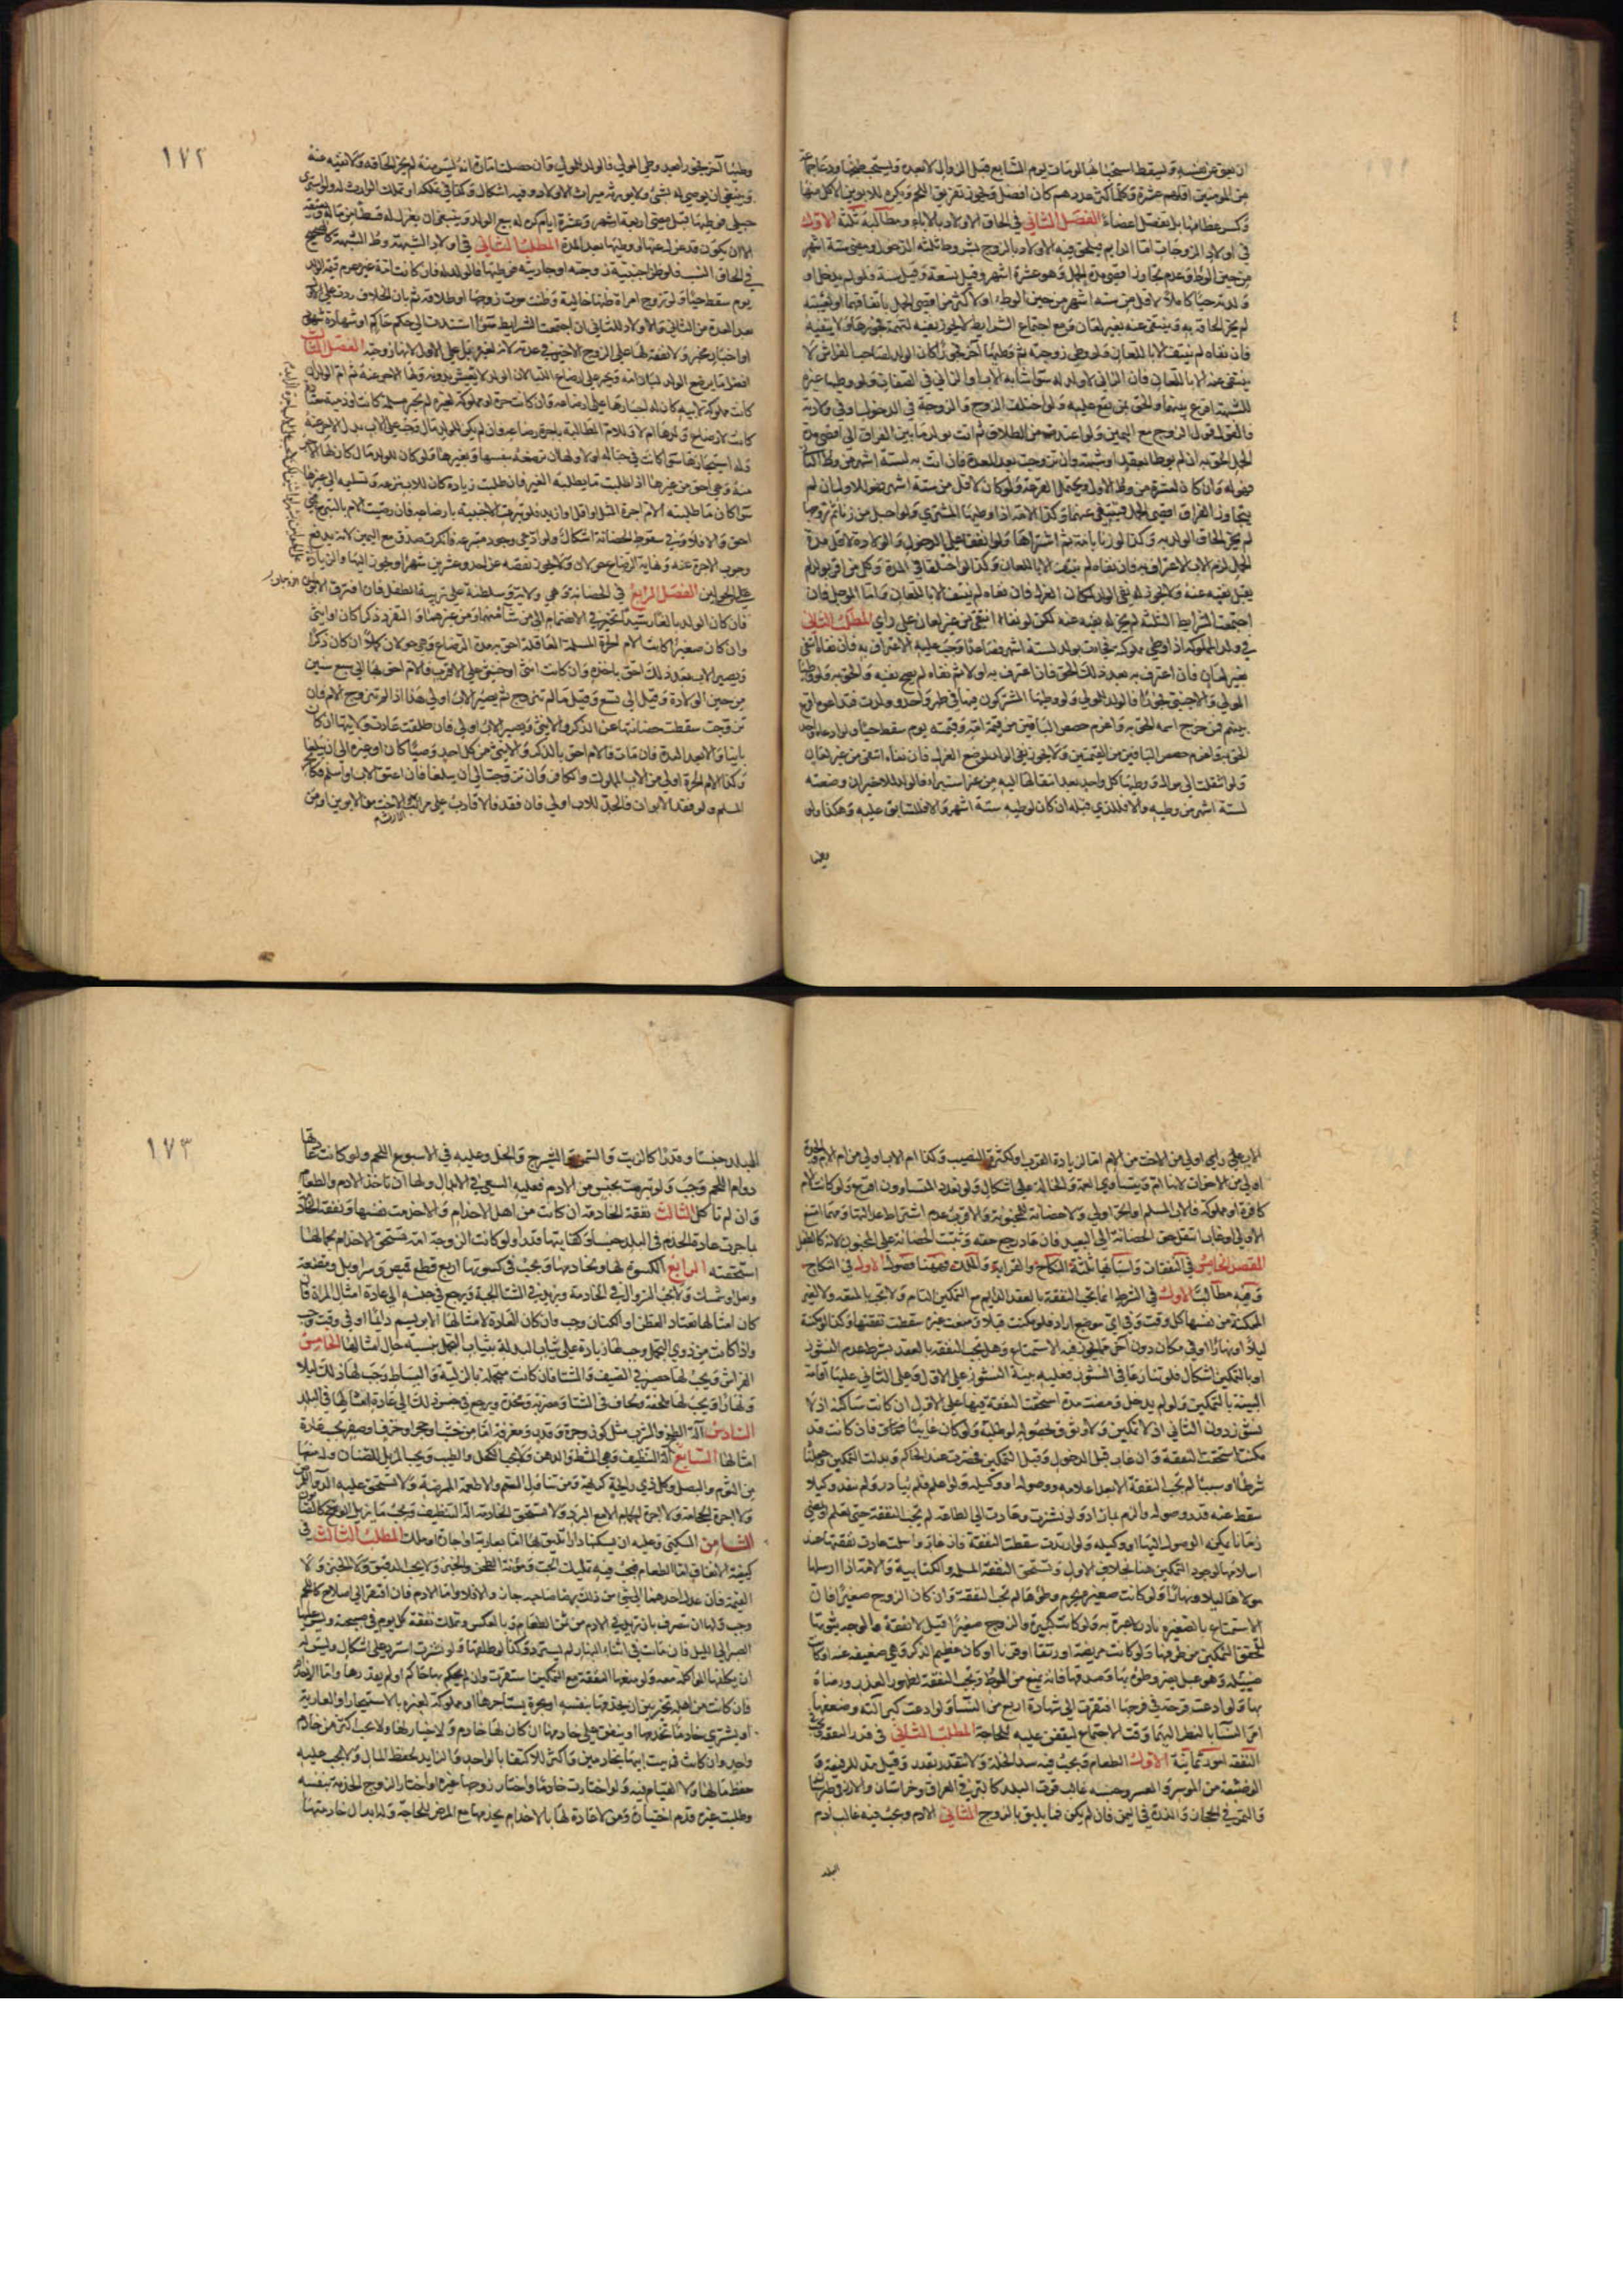 ان يعق عن نفسه ولا يسقط استحبابها لو مات يوم السابع قبل الزوال لا بعده ويستحب طبخها ودعا جماعة
من المؤمنين اقلهم عشرة وكلما كثر عددهم كان افضل ويجوز تفريق اللحم ويكره للابوين الاكل منها
وكسر عظامها بل يفصل اعضاء الفصل الثاني في الحاق الاولاد بالاباء ومطالبه ثلثة الاول
في اولاد الزوجات اما الدايم فيلحق فيه الاولاد بالزوج بشروط ثلثه الدخول ومضي ستة اشهر
من حين الوطؤ وعدم تجاوز اقصى مدة الحمل وهو عشرة اشهر وقيل تسعة وقيل سنة فلو لم يدخل او
ولدته حيا كاملا لاقل من ستة اشهر من حين الوطء او لاكثر من اقصى الحمل باتفاقهما او لغيبته
لم يجز الحاقه به وينتفى عنه بغير لعان ومع اجتماع الشرايط لا يجوز نفيه لتهمة فجورها ولا ينتفيه
فان نفاه لم ينتف الا باللعان ولو وطى زوجته ثم وطئها آخر فجورا كان الولد لصاحب الفراش لا
ينتفى عنه الا باللعان فان الزاني لا ولد له سواء شابه الاب او الزاني في الصفات ولو وطئها غيره
للشبهة اقرع بينهما والحق بمن تقع عليه ولو اختلف الزوج والزوجة في الدخول او في ولادته
فالقول قول الزوج مع اليمين ولو اعتدت من الطلاق ثم اتت بولد ما بين الفراق الى اقصى مدة
الحمل الحق به ان لم يوطا بعقد او شبهة وان تزوجت بعد العدة فان اتت به لستة اشهر من وطؤ الثاني
فهو له وان كان لعشرة من وطؤ الاول ويحتمل القرعة ولو كان لاقل من ستة اشهر فهو للاول ان لم
يتجاوز الفراق اقصى الحمل فينتفى عنهما وكذا الامة اذا وطئها المشتري ولو احبل من زنا ثم تزوجها
لم يجز الحاق الولد به وكذا لو زنا بامة ثم اشتراها ولو اتفقا على الدخول والولادة لاقل مدة
الحمل لزم الاب الاعتراف به فان نفاه لم ينتف الا باللعان وكذا لو اختلفا في المدة وكل من اقر بولد لم
يقبل نفيه عنه ولا يجوز له نفي الولد لمكان العزل فان نفاه لم ينتف الا باللعان واما المؤجل فان
اجتمعت الشرايط الثلثة لم يجز له نفيه عنه لكن لو نفاه انتفى من غير لعان على راي المطلب الثاني
في ولد المملوكة اذا وطى مملوكته فجاءت بولد لستة اشهر فصاعدا وجب عليه الاعتراف به فان نفاه انتفى
بغير لعان فان اعترف به بعد ذلك الحق فان اعترف به اولا ثم نفاه لم يصح نفيه والحق به ولو وطئها
المولى والاجنبي فجورا فالولد للمولى ولو وطئها المشتركون فيها في طهر واحد وولدت فتداعوه اقرع
بينهم فمن خرج اسمه الحق به واغرم حصص الباقين من قيمة امه وقيمته يوم سقط حيا ولو ادعاه واحد
الحق به واغرم حصص الباقين من القيمتين ولا يجوز نفي الولد لموضع العزل فان نفاه انتفى من غير لعان
ولو انتقلت الى موال ووطئها كل واحد بعد انتقالها اليه من غير استبراء فالولد للاخير ان وضعته
لستة اشهر من وطيه والا فللذي قبله ان كان لوطيه ستة اشهر والا فللسابق عليه وهكذا ولو
وطئها
١٧٢
وطئها آخر فجورا بعيد وطى المولى فالولد للمولى فان حصلت امارة انه ليس منه لم يجز الحاقه ولا نفيه منه
وينبغي ان يوصي له بشئ ولا يورثه ميراث الاولاد وفيه اشكال وكذا في تملكه او تملك الوارث له ولو اشترى
حبلى فوطئها قبل مضي اربعة اشهر وعشرة ايام كره له بيع الولد وينبغي ان يعزل له قسطا من ماله ويعتقه
الا ان يكون قد عزل عنها او وطئها بعد المدة المطلب الثالث في اولاد الشبهة وطؤ الشبهة كالصحيح
في الحاق النسب فلو ظن اجنبية زوجته او جاريته فوطئها فالولد له فان كانت امة غيره غرم قيمة الولد
يوم سقط حيا ولو تزوج امراة ظنها خالية وظنت موت زوجها او طلاقه ثم بان الخلاف ردت على الاول
بعد العدة من الثاني والاولاد للثاني ان اجتمعت الشرايط سواء استندت الى حكم حاكم او شهادة شهود
او اخبار مخبر ولا نفقة لها على الزوج الاخير في عدته لانه لغيره بل على الاول لانها زوجته الفصل الثالث
افضل ما يرضع الولد لبان امه ويجبر على ارضاع اللباء لان الولد لا يعيش بدونه ولها الاجر عنه ثم ام الولد ان
كانت مملوكة لابيه كان له اجبارها على ارضاعه وان كانت حرة او مملوكة لغيره لم يجبر مسلمة كانت او ذمية
احق والا فلا وفي سقوط الحضانة اشكال ولو ادعى وجود متبرعه فانكرت صدق مع اليمين لانه يدفع
وجوب الاجرة عنه ونهاية الرضاع حولان ولا يجوز نقصه عن احد وعشرين شهرا ويجوز اليها والزيادة
على الحولين الفصل الرابع في الحضانة وهي ولاية وسلطنة على تربية الطفل فان افترق الابوان
فان كان الولد بالغا رشيدا تخير في الانضمام الى من شاء منهما ومن غيرهما والتفرد ذكرا كان او انثى
وان كان صغيرا كانت الام الحرة المسلمة العاقلة احق به مدة الرضاع وهي حولان كملا ان كان ذكرا
ويصير الاب بعد ذلك احق باخذه وان كانت انثى او خنثى على الاقرب فالام احق بها الى سبع سنين
من حين الولادة وقيل الى تسع وقيل ما لم تتزوج ثم يصير الاب اولى هذا اذا لم تتزوج الام فان
تزوجت سقطت حضانتها عن الذكر والانثى ويصير الاب اولى فان طلقت عادت ولايتها ان كان
باينا والا بعد العدة فان مات فالام احق بالذكر والانثى من كل احد وصيا كان او غيره الى ان يبلغا
وكذا الام الحرة اولى من الاب المملوك والكافر وان تزوجت الى ان يبلغا فان اعتق الاب او اسلم فكالحر
المسلم ولو فقد الابوان فالجد للاب اولى فان فقد فالاقارب على مراتب الارث فالاخت من الابوين او من
الاب على راي اولى من الاخت من الام اما لزيادة القرب او لكثرة النصيب وكذا ام الاب اولى من ام الام والجدة
اولى من الاخوات لانها ام ويتساوى العمة والخالة على اشكال ولو تعدد المتساوون اقرع ولو كانت الام
كافرة او مملوكة فالاب المسلم او الحر اولى ولا حضانة للمجنونة والاقرب عدم اشتراط عدالتها ومتى امتنع
الاولى او غاب انتقل حق الحضانة الى البعيد فان عاد رجع حقه وتثبت الحضانة على المجنون لانه كالطفل
المقصد الخامس في النفقات واسبابها ثلثة النكاح والقرابة والملك فههنا فصول الاول في النكاح
وفيه مطالب الاول في الشرط انما تجب النفقة بالعقد الدايم مع التمكين التام ولا تجب بالمتعة ولا لغير
الممكنة من نفسها كل وقت وفي اي موضع اراد فلو مكنت قبلا ومنعت غيره سقطت نفقتها وكذا لو مكنته
ليلا او نهارا او في مكان دون آخر مما يجوز فيه الاستمتاع وهل تجب النفقة بالعقد بشرط عدم النشوز
او بالتمكين اشكال فلو تنازعا في النشوز فعليه بينة النشوز على الاول وعلى الثاني عليها اقامة
البينة بالتمكين ولو لم يدخل ومضت مدة استحقت النفقة فيها على الاول ان كانت ساكتة اذ لا
نشوز دون الثاني اذ لا تمكين ولا وثوق بحصوله لو طلبه ولو كان غايبا فان كانت قد
مكنت استحقت النفقة وان غاب قبل الدخول وقبل التمكين فحضرت عند الحاكم وبذلت التمكين وجعلنا
شرطا او سببا لم تجب النفقة الا بعد اعلامه ووصوله او وكيله ولو اعلم فلم يبادر ولم ينفذ وكيلا
سقط عنه قدر وصوله والزم بما زاد ولو نشزت وعادت الى الطاعة لم تجب النفقة حتى يعلم ويمضي
زمان يمكنه الوصول اليها او وكيله ولو ارتدت سقطت النفقة فان غاب واسلمت عادت نفقتها عند
اسلامها لوجود التمكين هنا بخلاف الاول وتستحق النفقة المسلمة والكتابية والامة اذا ارسلها
مولاها ليلا ونهارا ولو كانت صغيرة يحرم وطؤها لم تجب النفقة وان كان الزوج صغيرا فان
الاستمتاع بالصغيرة نادر لا عبرة به ولو كانت كبيرة والزوج صغيرا قيل لا نفقة والوجه ثبوتها
لتحقق التمكين من طرفها ولو كانت مريضة او رتقا او قرنا او كان عظيم الذكر وهي ضعيفة عنه او كانت
بها ولو ادعت قرحة في فرجها افتقرت الى شهادة اربع من النساء ولو ادعت كبر آلته وضعفها
امر النساء بالنظر اليهما وقت الاجتماع ليقفن عليه للحاجة المطلب الثاني في قدر النفقة
النفقة امور ثمانية الاول الطعام ويجب فيه سد الخلة ولا تتقدر بقدر وقيل مد للرفيعة و
الوضيعة من الموسر والمعسر وجنسه غالب قوت البلد كالبر في العراق وخراسان والارز في طبرستان
والتمر في الحجاز والذرة في اليمن فان لم يكن فما يليق بالزوج الثاني الادم ويجب فيه غالب ادم
البلد
١٧٣
البلد جنسا وقدرا كالزيت والشيرج والخل وعليه في الاسبوع اللحم ولو كانت عادتها
دوام اللحم وجب ولو تبرمت بجنس من الادم فعليه السعي في الابدال ولها ان تاخذ الادم والطعام
وان لم تاكل الثالث نفقة الخادمة ان كانت من اهل الاخدام ولا اخدمت بنفسها ونفقة الخادم
ما جرت عادة الخدم في البلد جنسا وكفايتها قدرا ولو كانت الزوجة امة تستحق الاخدام لجمالها
استحقته الرابع الكسوة لها ولخادمها ويجب في كسوتها اربع قطع قميص وسراويل ومقنعة
ونعل او شمشك ولا يجب السراويل في الخادمة ويزيد في الشتاء الجبة ويرجع في جنسه الى عادة امثال المراة فان
كان امثالها تعتاد القطن او الكتان وجب وان كان العادة لامثالها الابريسم دايما او في وقت وجب
واذا كانت من ذوي التجمل وجب لها زيادة على ثياب البذلة بثياب التجمل بنسبة حال امثالها الخامس
الفراش ويجب لها حصير في الصيف والشتاء فان كانت متجملة بالزلية والبساط وجب لها ذلك ليلا
ونهارا ويجب لها ملحفة ولحاف في الشتاء ومضربة ومخدة ويرجع في جنس ذلك الى عادة امثالها في البلد
السادس آلة الطبخ والشرب مثل كوز وجرة وقدر ومغرفة اما من خشب او حجر او خزف او صفر بحسب عادة
امثالها السابع آلة التنظيف وهي المشط والدهن ولا يجب الكحل والطيب ويجب المزيل للصنان وله منعها
من الثوم والبصل وكل ذي رايحة كريهة ومن تناول السم والاطعمة الممرضة ولا تستحق عليه الدواء للمرض
ولا اجرة الحجامة ولا اجرة الحمام الا مع البرد ولا تستحق الخادمة آلة التنظيف ويجب ما يزيل الوسخ كالصابون
الثامن السكنى وعليه ان يسكنها دارا تليق بها اما بعارية او اجارة او ملك المطلب الثالث في
كيفية الانفاق اما الطعام فيجب فيه تمليك الحب ومؤنة الطحن والخبز ولا يجب الدقيق ولا الخبز ولا
القيمة فان عدل احدهما الى شئ من ذلك برضا صاحبه جاز والا فلا واما الادم فان افتقر الى اصلاح كاللحم
وجب ولها ان تتصرف بان تزيد في الادم من ثمن الطعام وبالعكس وتملك نفقة كل يوم في صبيحته وليس عليها
الصبر الى الليل فان ماتت في اثناء النهار لم تسترد وكذا لو طلقها ولو نشزت استرد على اشكال وليس له
ان يكلفها المواكلة معه ولو منعها النفقة مع التمكين استقرت وان لم يحكم بها حاكم او لم يقدرها واما الاخدام
فان كانت من اهله تخير بين ان يخدمها بنفسه او بحرة يستاجرها او مملوكة لغيره بالاستيجار او العارية
او يشتري خادما تخدمها او ينفق على خادمها ان كان لها خادم والاختيار لها ولا يجب اكثر من خادم
واحد وان كانت في بيت ابيها بخادمين واكثر للاكتفا بالواحد والزايد لحفظ المال ولا يجب عليه
حفظ مالها ولا القيام فيه ولو اختارت خادما واختار زوجها غيره او اختار الزوج الخدمة بنفسه
وطلبت غيره قدم اختياره ومن لا عادة لها بالاخدام يخدمها مع المرض للحاجة وله ابدال خادمتها